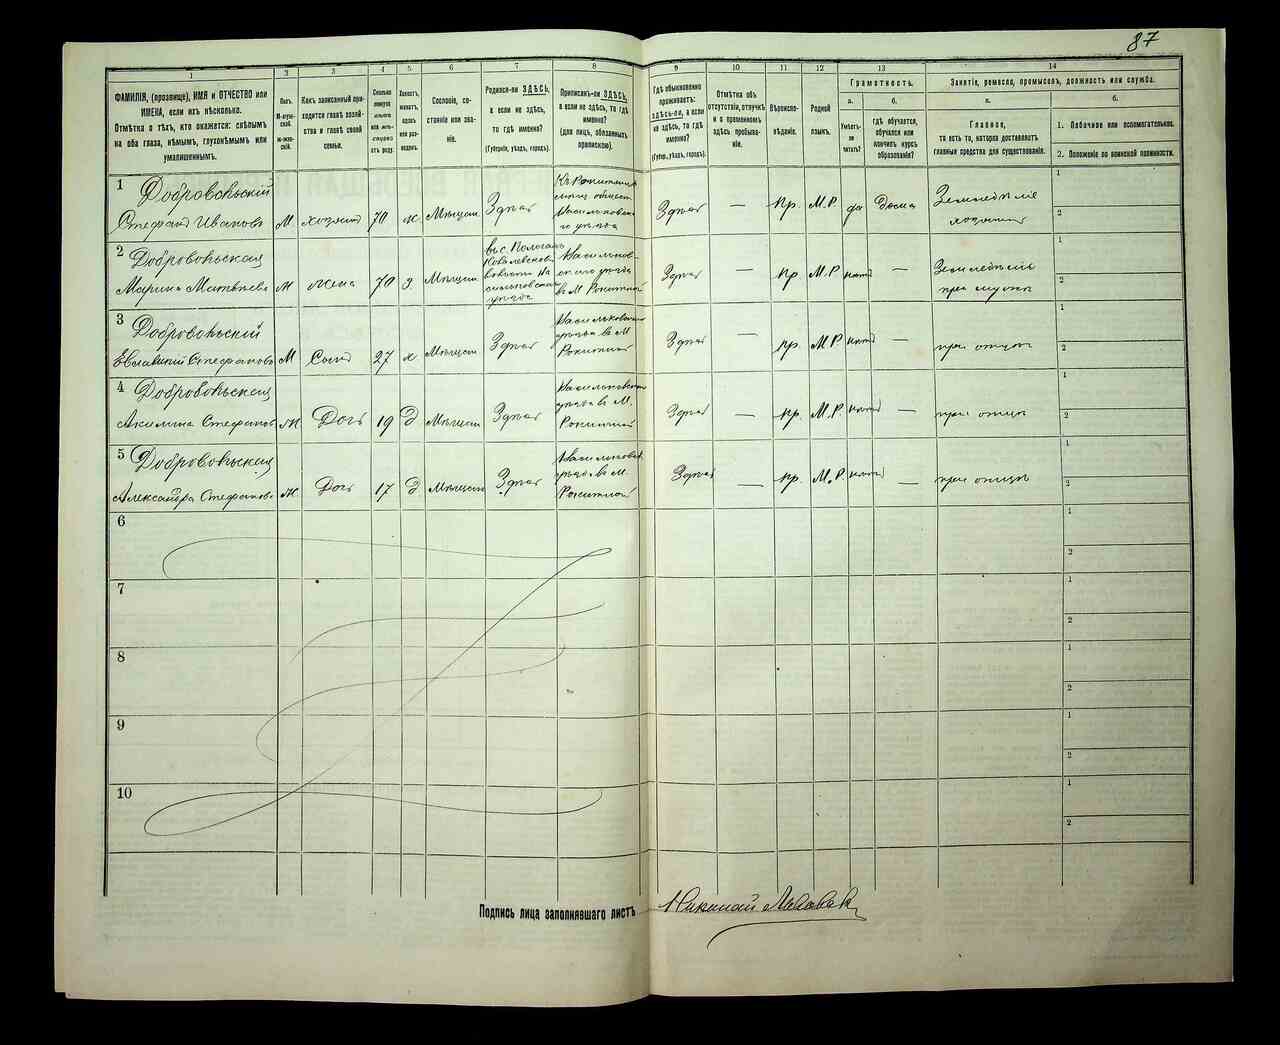 87
1 2 3 4 5 6 7 8 9 10 11 12 13 14
ФАМИЛІЯ, (прозвище), ИМЯ и ОТЧЕСТВО или
ИМЕНА, если ихъ нѣсколько.
Отмѣтка о тѣхъ, кто окажется: слѣпымъ
на оба глаза, нѣмымъ, глухонѣмымъ или
умалишеннымъ.
Полъ.
М-мужской.
Ж-женскій.
Какъ записанный приходится
главѣ хозяйства
и главѣ своей
семьи.
Сколько
минуло
лѣтъ
или мѣсяцевъ
отъ роду.
Холостъ,
женатъ,
вдовъ
или разведенъ.
Сословіе, состояніе
или званіе.
Родился-ли ЗДѢСЬ,
а если не здѣсь,
то гдѣ именно?
(Губернія, уѣздъ, городъ).
Приписанъ-ли ЗДѢСЬ,
а если не здѣсь, то гдѣ
именно?
(для лицъ, обязанныхъ
припискою).
Гдѣ обыкновенно
проживаетъ:
здѣсь-ли, а если
не здѣсь, то гдѣ
именно?
(Губерн., уѣздъ, городъ).
Отмѣтка объ
отсутствіи, отлучкѣ
и о временномъ
здѣсь пребываніи.
Вѣроисповѣданіе.
Родной
языкъ.
Грамотность.
а.
Умѣетъ-ли
читать?
б.
гдѣ обучается,
обучался или
кончилъ курсъ
образованія?
Занятіе, ремесло, промыселъ, должность или служба.
а.
Главное,
то есть то, которое доставляетъ
главныя средства для существованія.
б.
1. Побочное или вспомогательное.
2. Положеніе по воинской повинности.
1
Добровольскій
Стефанъ Ивановъ М хозяинъ 70 ж Мѣщан. Здѣсь
Здѣсь — Пр. М.Р. да Дома Земледѣліе
хозяинъ
1
2
2
Добровольская
Марина Матвѣева Ж жена 70 з Мѣщан.
Здѣсь — пр М.Р нѣтъ — Земледѣліе
при мужѣ
1
2
3
Добровольскій
Стефановъ М Сынъ 27 х Мѣщан Здѣсь
Васильковскаго
уѣзда въ М.
Рокитной
Здѣсь — пр. М.Р нѣтъ при отцѣ
1
2
4
Добровольская
Акилина Стефанов Ж Дочь 19 д Мѣщан Здѣсь
уѣзда въ М.
Рокитной
Здѣсь — пр. М.Р. нѣтъ — при отцѣ
1
2
5
Добровольская
Александра Стефанова Ж Дочь 17 д Мѣщан Здѣсь
уѣзда въ М.
Рокитной
Здѣсь — пр. М.Р. нѣтъ — при отцѣ
1
2
6
1
2
7
1
2
8
1
2
9
1
2
10
1
2
Подпись лица заполнявшаго листъ Николай